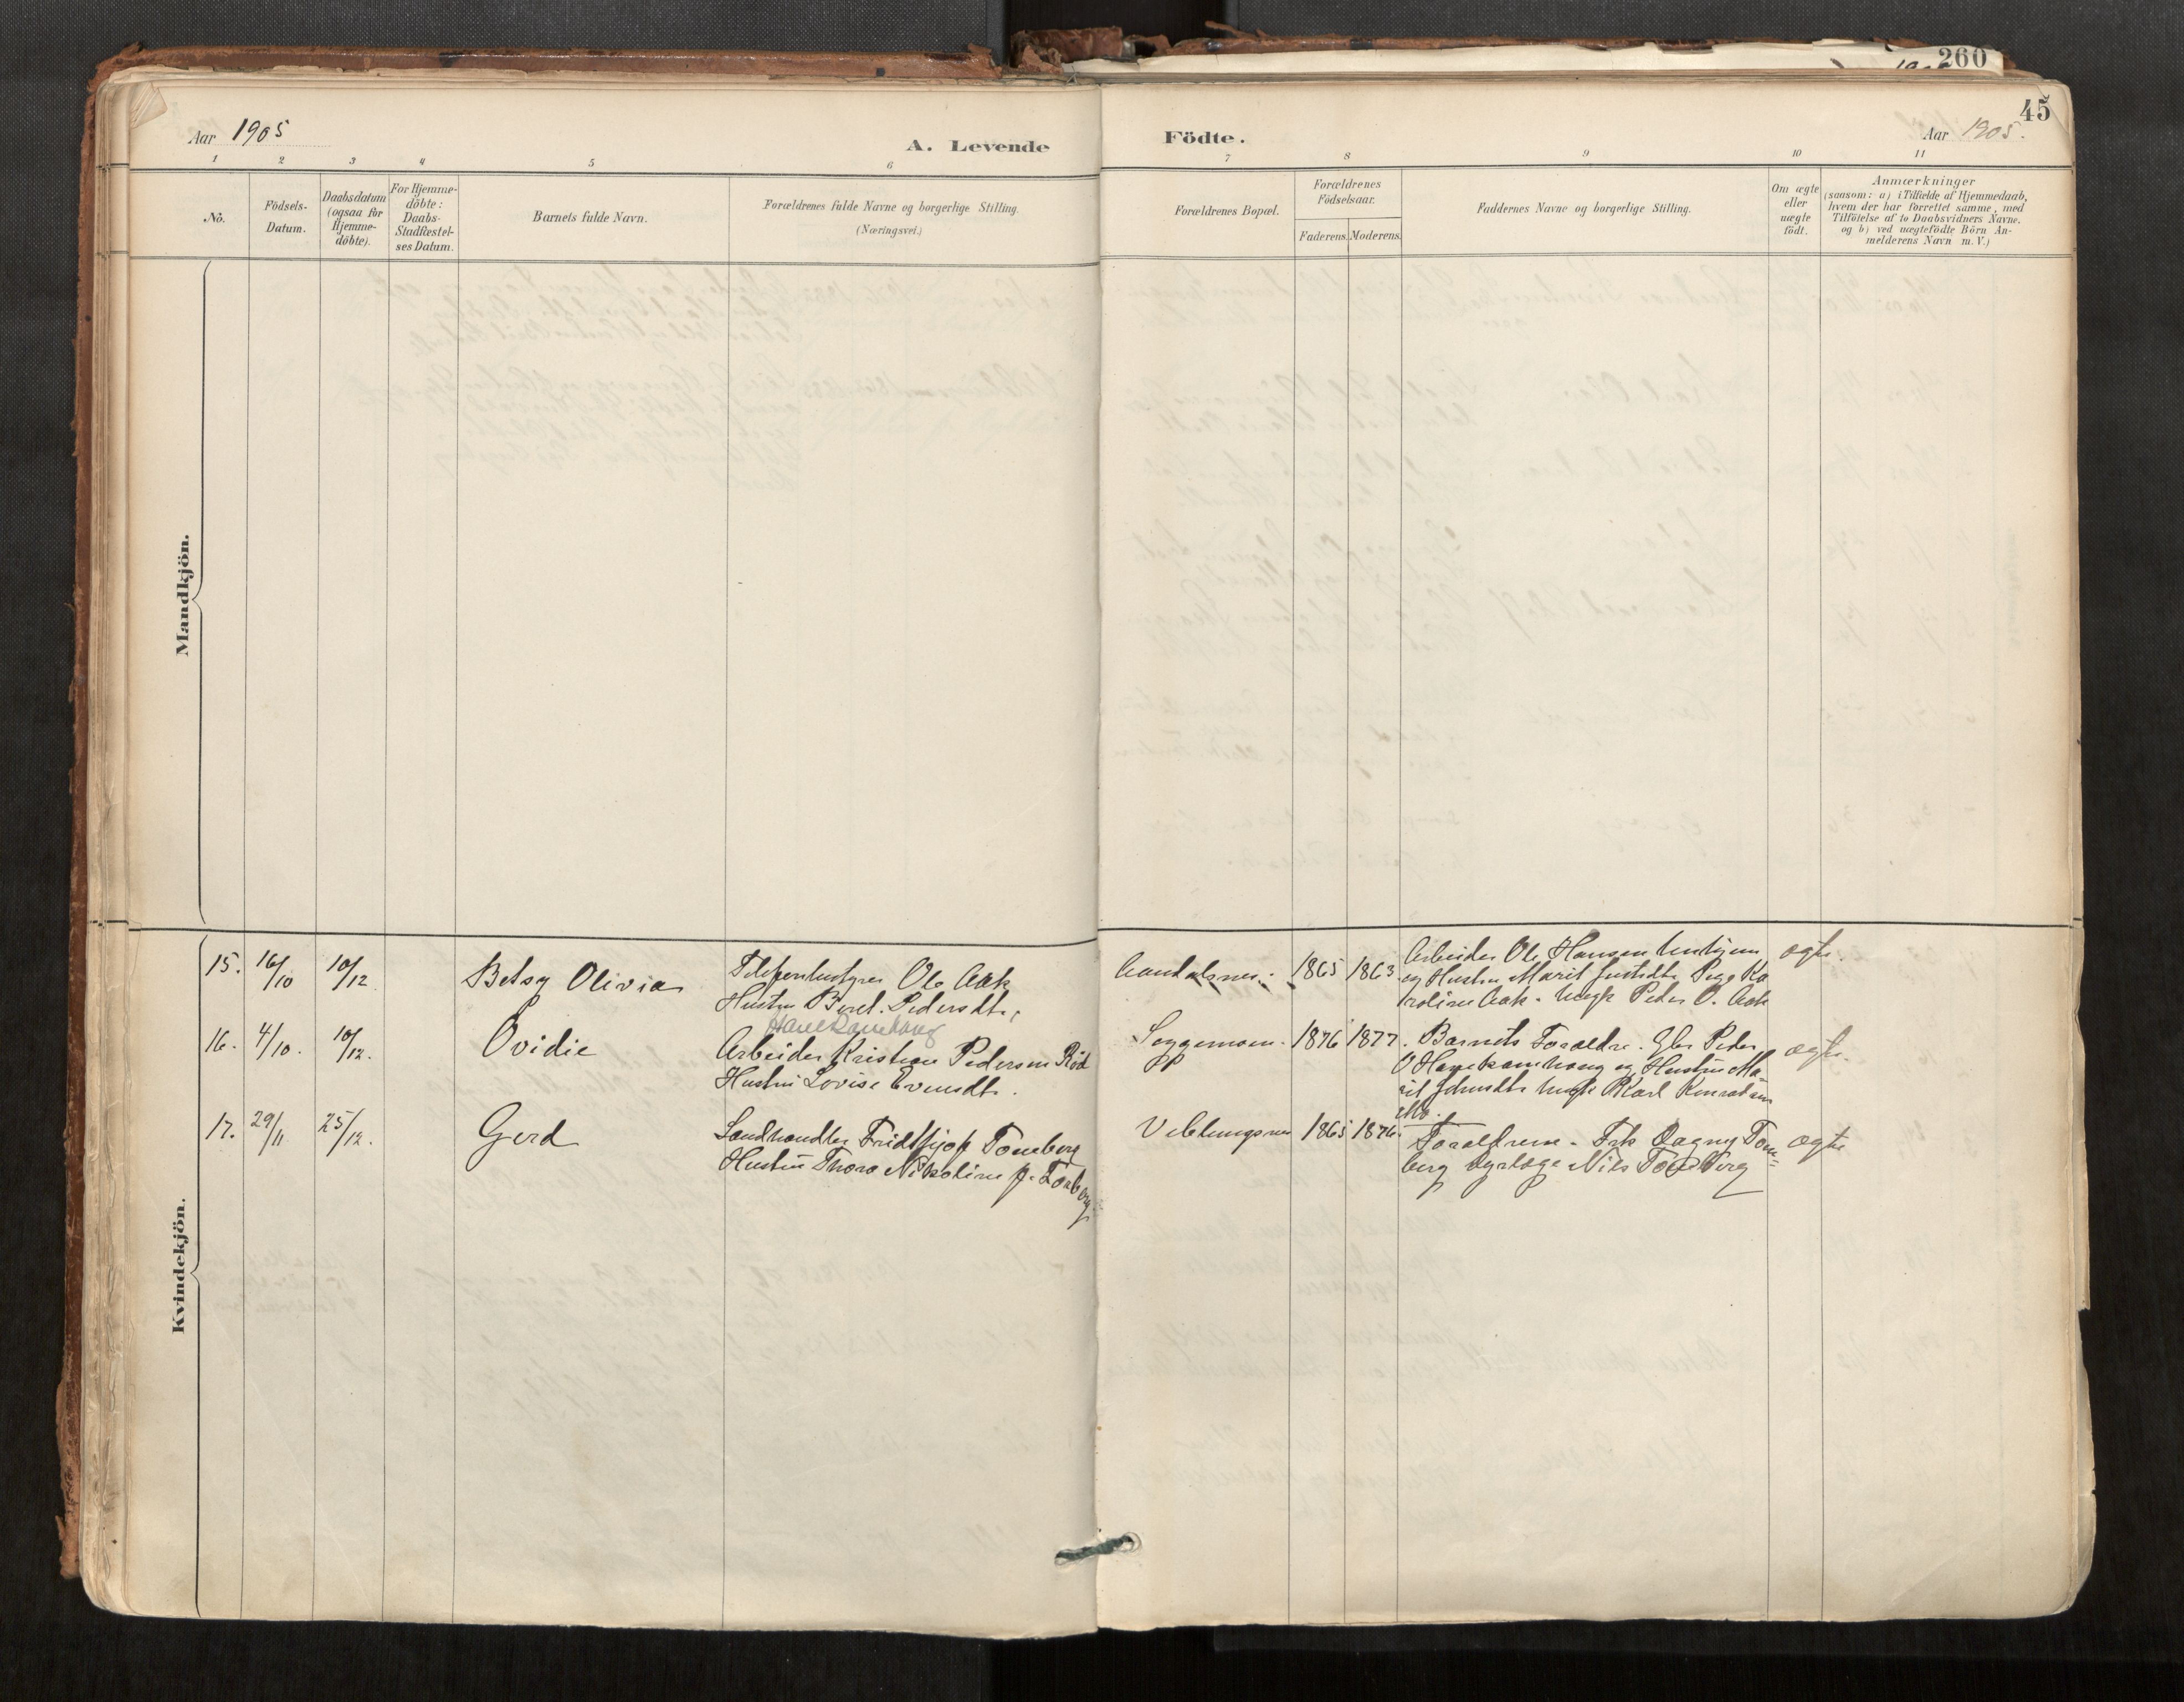 260
45
Aar 1905
A. Levende
Födte.
Aar 1905.
1 2 3 4 5 6 7 8 9 10 11
No.
Födsels-
Datum.
Daabsdatum
(ogsaa for
Hjemme-
döbte).
For Hjemme-
döbte:
Daabs-
Stadfæstel-
ses Datum.
Barnets fulde Navn.
Forældrenes fulde Navne og borgerlige Stilling.
(Næringsvei.)
Forældrenes Bopæl.
Forældrenes
Födselsaar.
Faderens. Moderens.
Faddernes Navne og borgerlige Stilling.
Om ægte
eller
uægte
födt.
Anmærkninger
(saasom: a) i Tilfælde af Hjemmedaab,
hvem der har forrettet samme, med
Tilföielse af to Daabsvidners Navne.
og b) ved uægtefödte Börn An-
melderens Navn m. V.)
Mandkjön.
Kvindekjön.
15. 16/10 10/12 Betsy Olivia
Ole Aak
Hustru Beret Pedersdt.
Aandalsnes. 1865 1863.
Arbeider Ole Hansen
og Hustru Marit Pige Ka
roline Aak. Ungk Peder O. Aak
ægte.
16. 4/10. 10/12. Ovidie
Hanekamhaug
Arbeider Kristian Pedersen Röd
Hustru Lovise Evensdt.
Soggemoen. 1876 1877.
Barnets Forældre. Gbr Peder
O Hanekamhaug og Hustru Ma
rit Johnsdt. Ungk Karl Konradsen
Mo.
ægte.
17. 29/11 25/12. Gerd
Landhandler Fridthjof Tomberg
Hustru Thora Nikoline f. Tomberg
Veblungsnes 1865 1876.
Forældrene. Frk Dagny Tom=
berg Dyrlæge Nils Tomberg
ægte